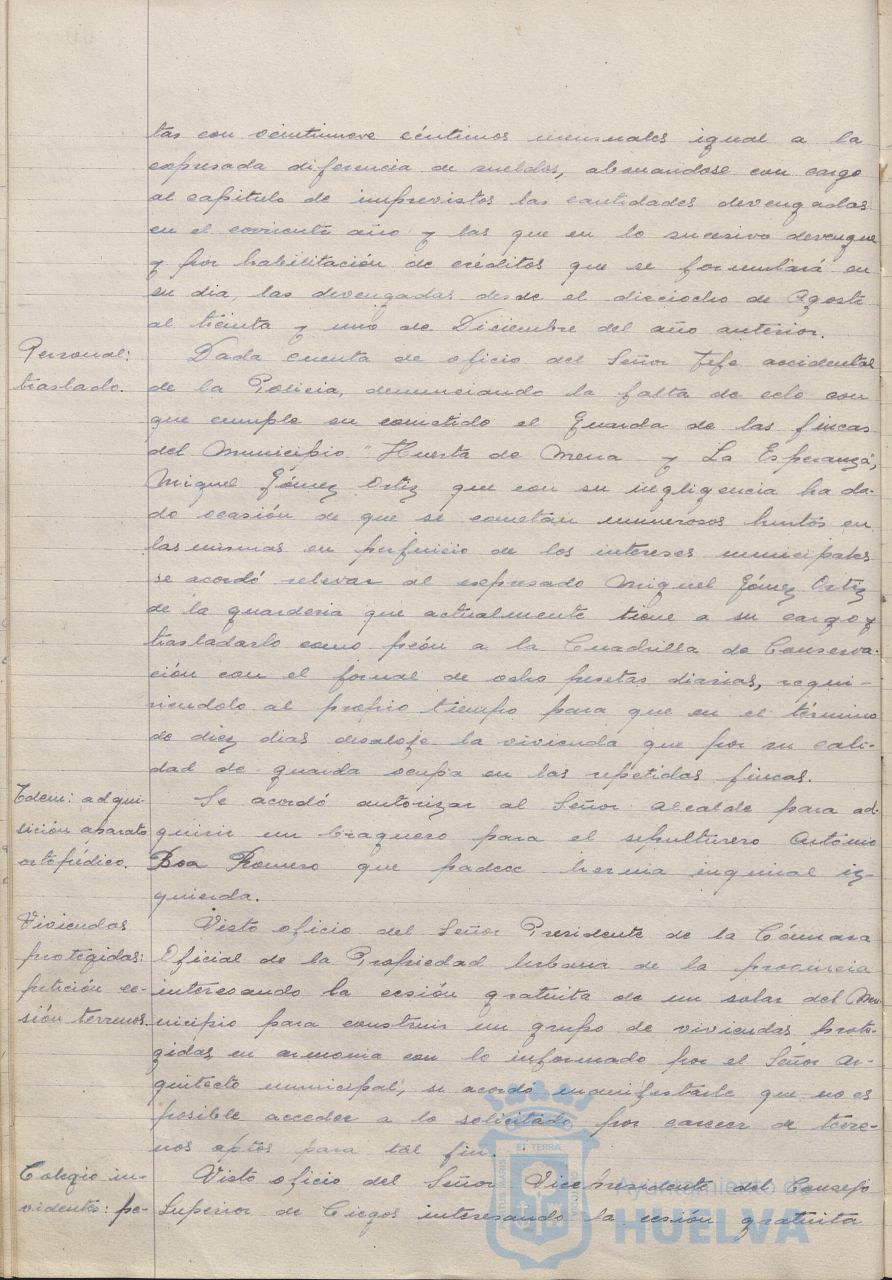 tas con veintinueve céntimos mensuales igual a la
expresada diferencia de sueldos, abonandose con cargo
al capitulo de imprevistos las cantidades devengadas
en el corriente año y las que en lo sucesivo devengue
y por habilitación de créditos que se formulará en
su dia, las devengadas desde el dieciocho de Agosto
al treinta y uno de Diciembre del año anterior.
Personal:
traslado.
Dada cuenta de oficio del Señor Jefe accidental
de la Policia, denunciando la falta de celo con
que cumple su cometido el Guarda de las fincas
del Municipio "Huerta de Mena y La Esperanza",
Miguel Gómez Ortiz que con su ingligencia ha da-
do ocasión de que se cometan numerosos hurtos en
las mismas en perjuicio de los intereses municipales
se acordó relevar al expresado Miguel Gómez Ortiz
de la guarderia que actualmente tiene a su cargo y
trasladarlo como peón a la Cuadrilla de Conserva-
ción con el jornal de ocho pesetas diarias, requi-
riendolo al propio tiempo para que en el término
de diez dias desaloje la vivienda que por su cali-
dad de guarda ocupa en las repetidas fincas.
Idem: adqui-
sición aparato
ortopédico.
Se acordó autorizar al Señor Alcalde para ad-
quirir un braguero para el sepulturero Antonio
Boa Romero que padece hernia inguinal iz-
quierda.
Viviendas
protegidas:
petición ce-
sión terrenos.
Visto oficio del Señor Presidente de la Cámara
Oficial de la Propiedad Urbana de la provincia
interesando la cesión gratuita de un solar del Mu-
nicipio para construir un grupo de viviendas prote-
gidas en armonia con lo informado por el Señor Ar-
quitecto municipal, se acordó manifestarle que no es
posible acceder a lo solicitado por carecer de terre-
nos aptos para tal fin.
Colegio in-
videntes: pe-
Visto oficio del Señor Vicepresidente del Consejo
Superior de Ciegos interesando la cesión gratuita
Ayuntamiento de
HUELVA